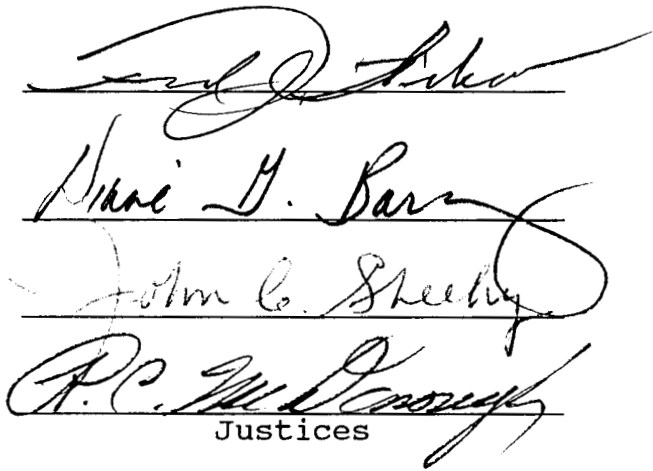 Diane G. Barz
John C. Sheehy
R. C. McDonough
Justices